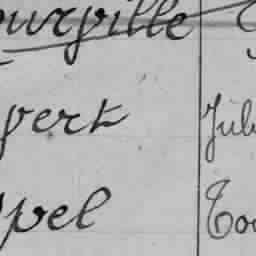 ourville
pert Jul
pel Too